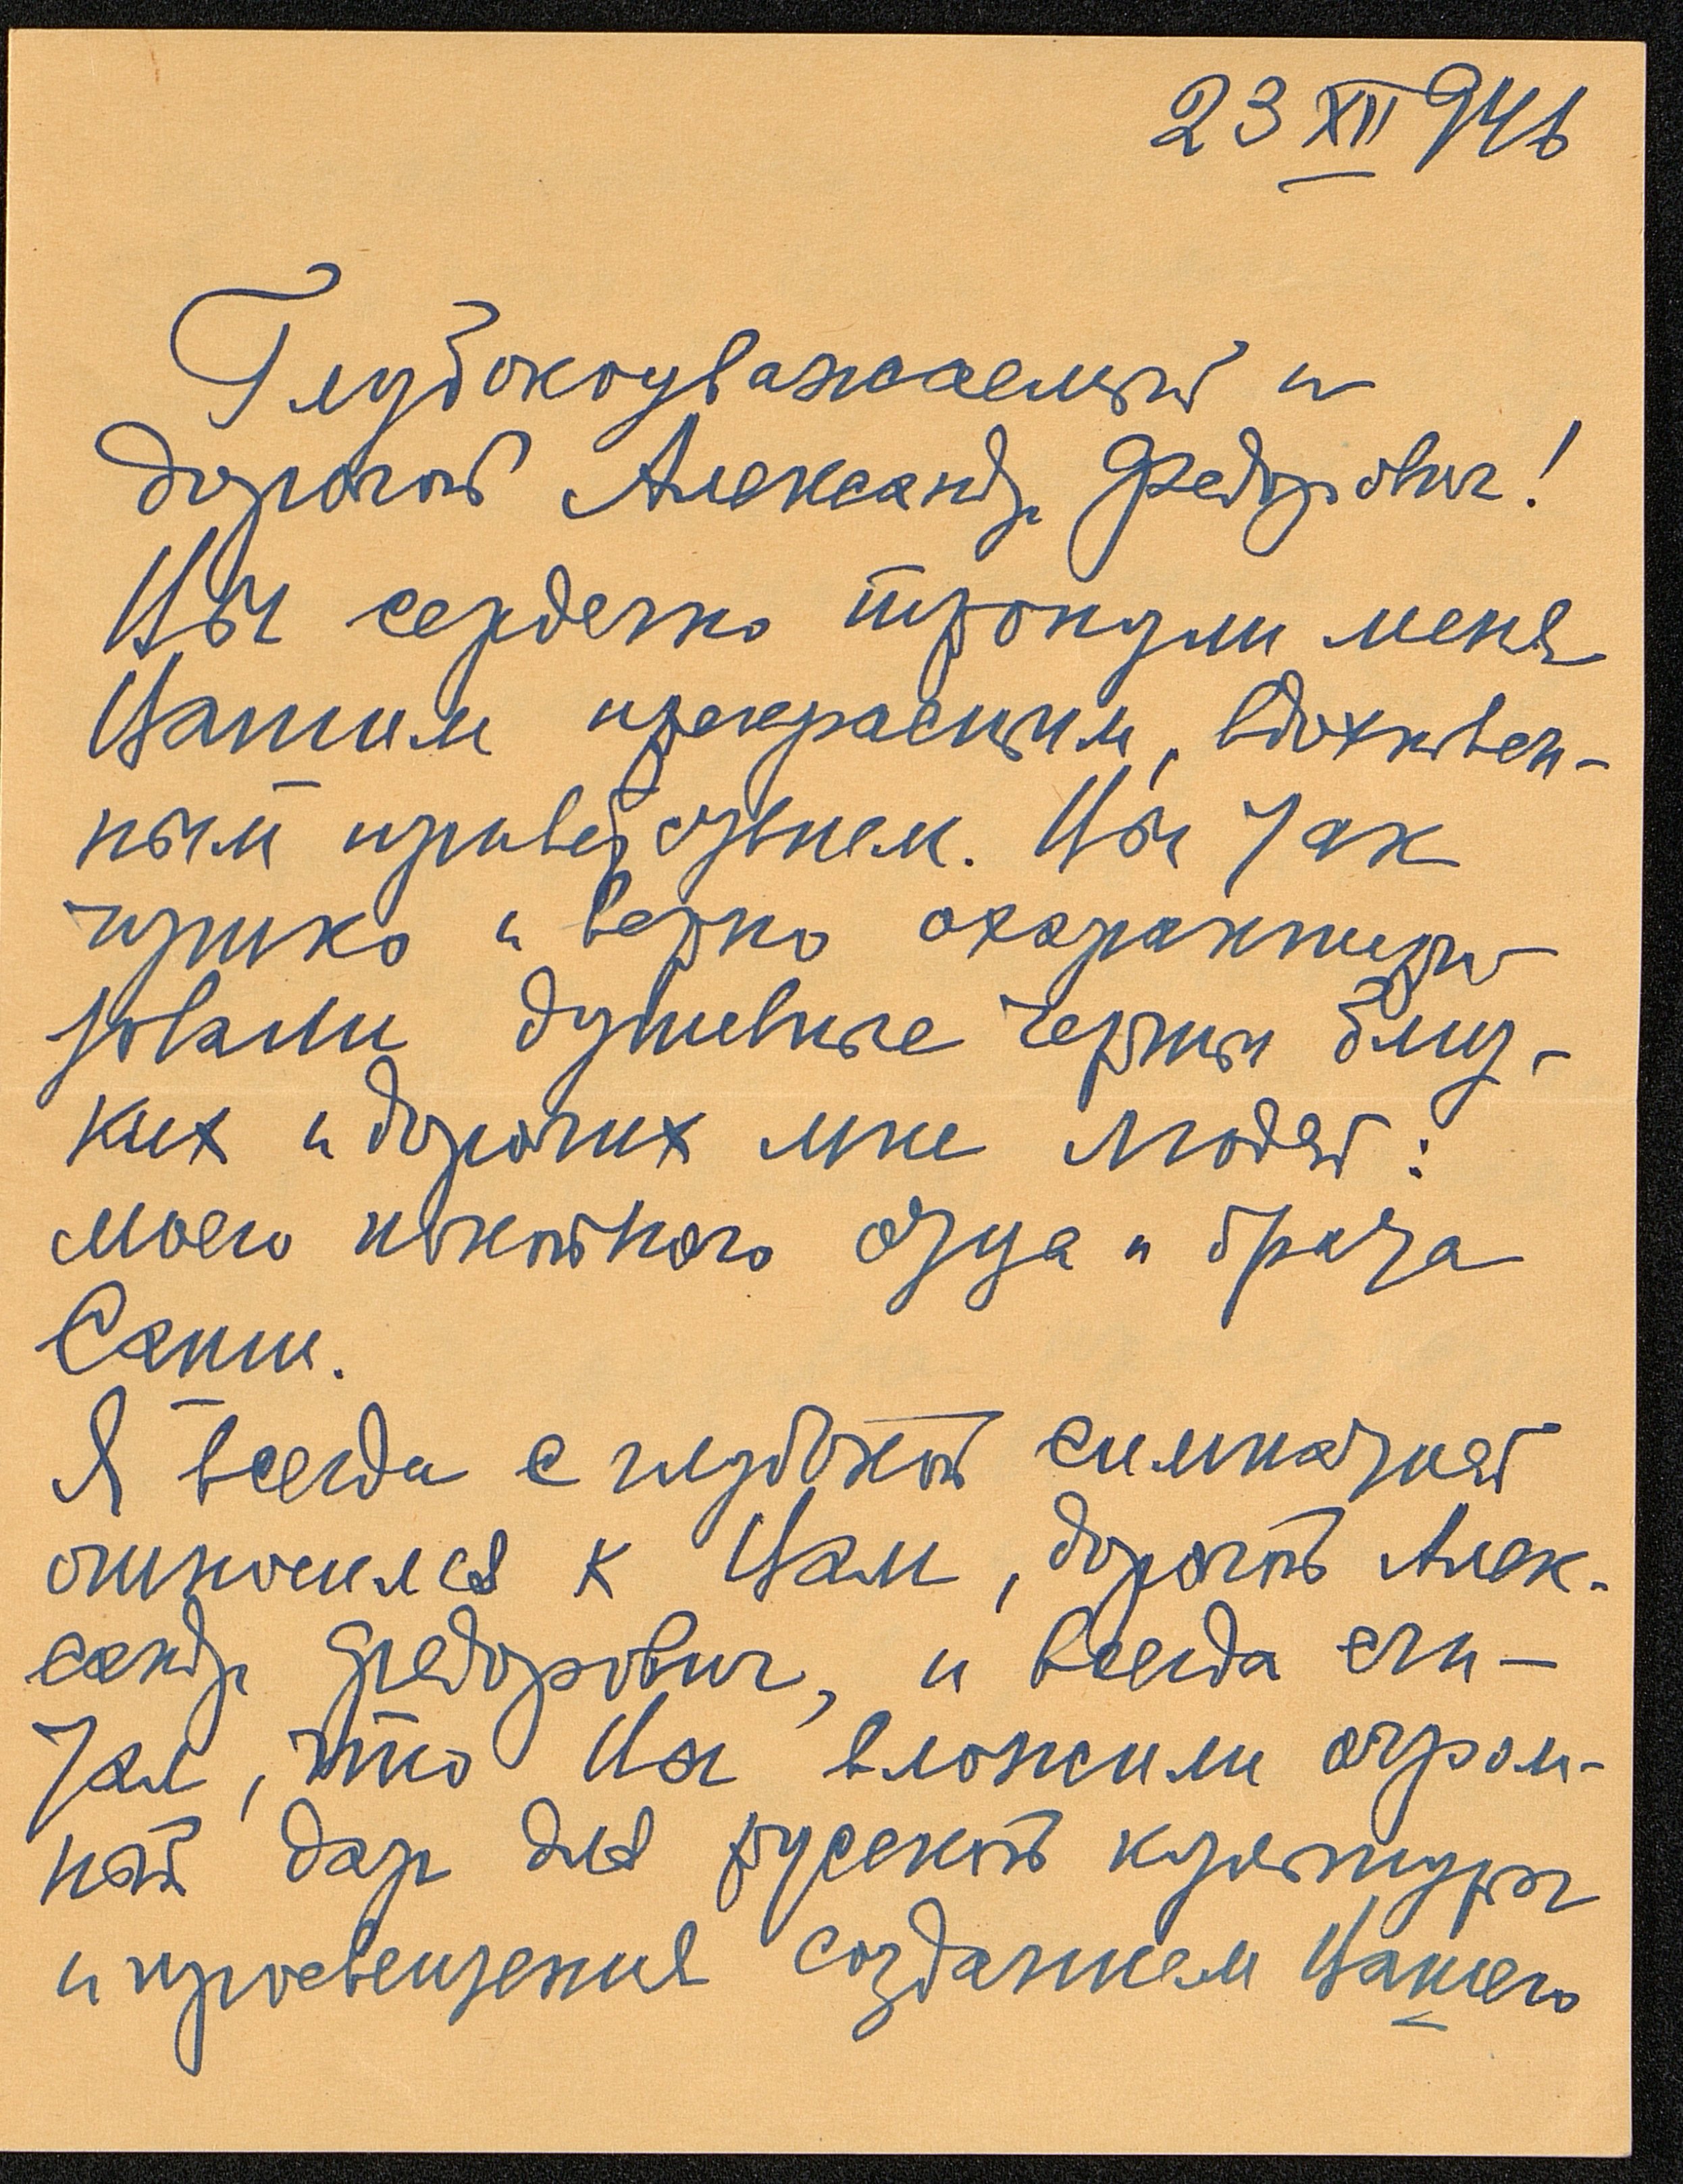 23 XII 946
Глубокоуважаемый и
дорогой Александр Федорович!
Вы сердечно тронули меня
Вашим прекрасным, вдохновен-
ным приветствием. Вы так
чутко и верно охарактери-
зовали душевные черты близ-
ких и дорогих мне людей:
моего покойного отца и брата
Сани.
Я всегда с глубокой симпатией
относился к Вам, дорогой Алек-
сандр Федорович, и всегда счи-
тал, что Вы вложили огром-
ный дар для русской культуры
и просвещения созданием Вашего